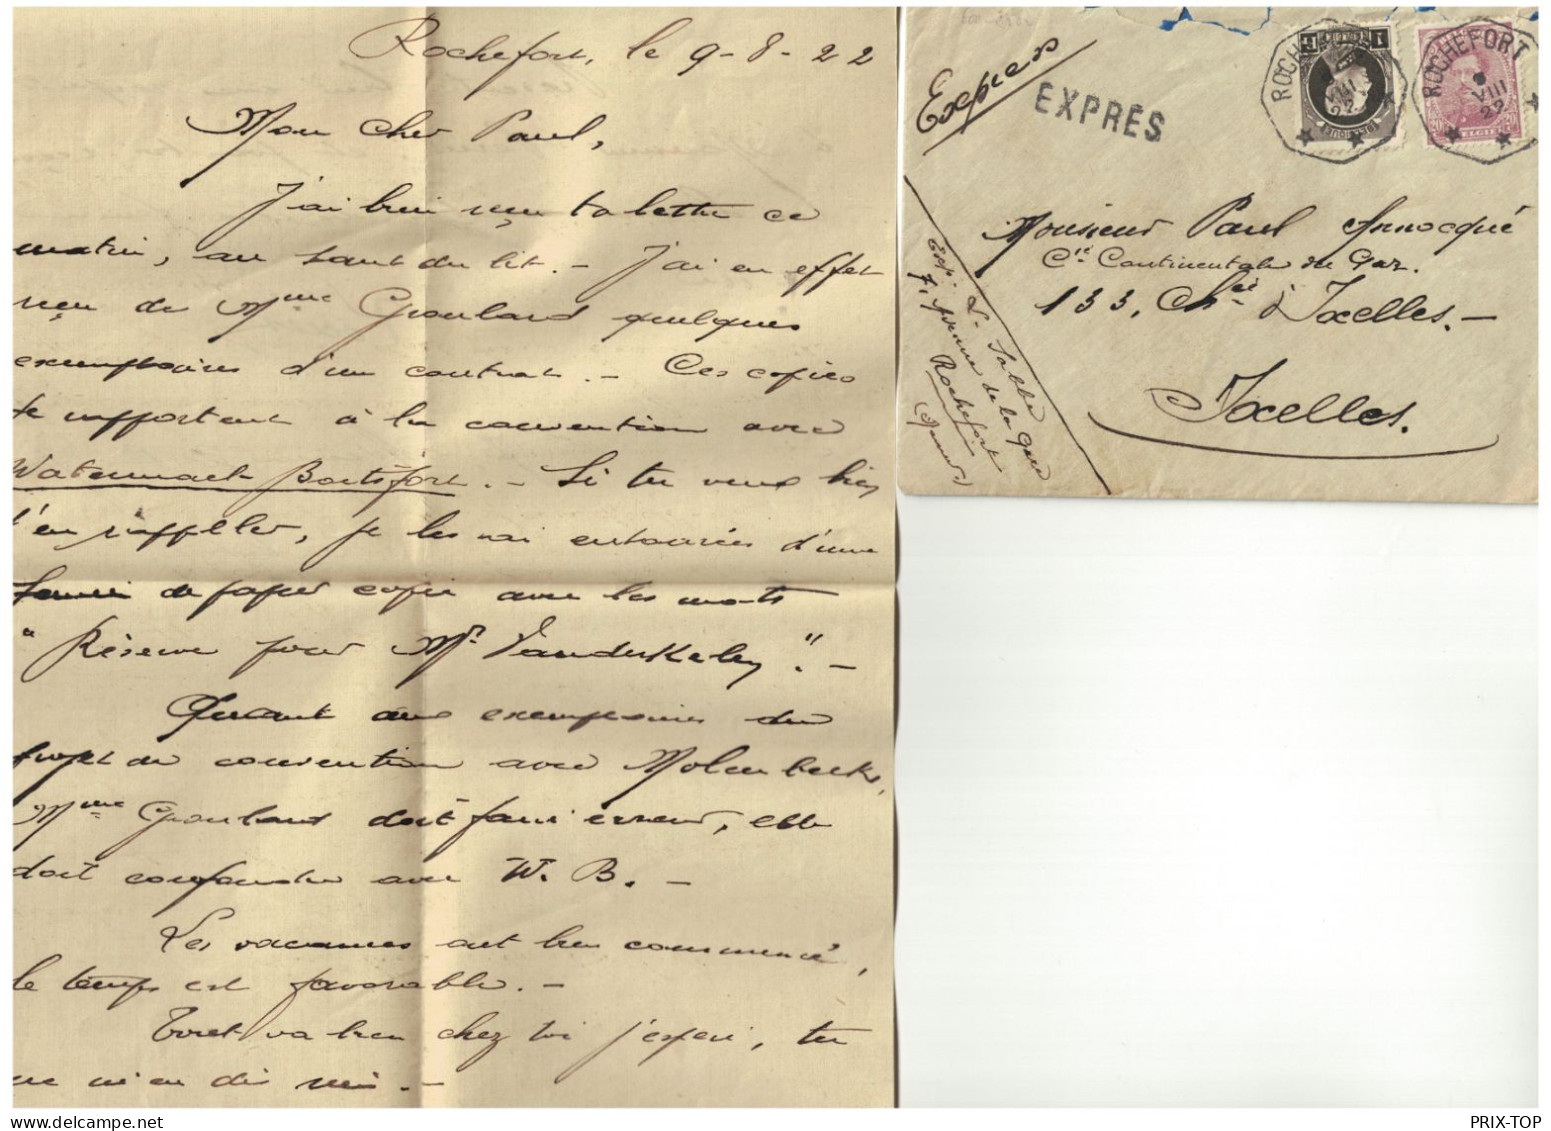 Rochefort, le 9-8-22
Mon cher Paul,
J'ai bien reçu ta lettre ce
matin, au saut du lit. - J'ai en effet
reçu de Mme Groulard quelques
exemplaires d'un contrat. - Ces copies
se rapportent à la convention avec
Watermael-Boitsfort. - Si tu veux bien
t'en rappeler, je les ai entourées d'une
de papier copie avec les mots
"Réserve pour Mr Vanderkelen". -
Quant aux exemplaires du
projet de convention avec Molenbeek,
Mme Groulard doit faire erreur, elle
doit confondre avec W. B. -
Les vacances ont bien commencé,
le temps est favorable. -
Tout va bien chez toi j'espère, tu
ne m'en dis rien. -
Express
EXPRÈS
ROCHEFORT
VIII
22
1 F
BELGIQUE
ROCHEFORT
9
VIII
22
20 20
BELGIË
Monsieur Paul Annocqué
Cie Continentale du Gaz.
133, Chée d'Ixelles. -
Ixelles.
Exp: L.
71, Avenue de la Gare
Rochefort
PRIX-TOP